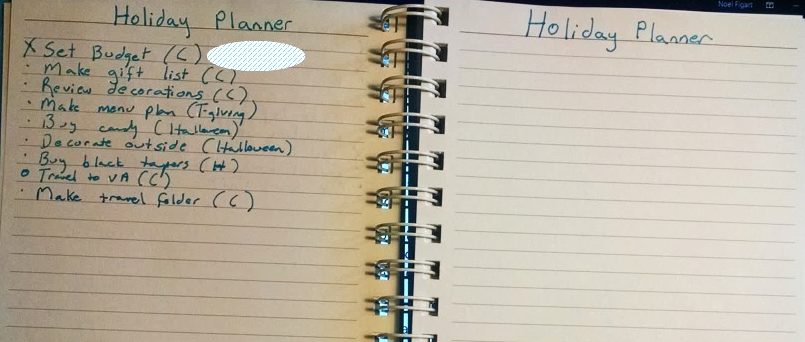 Noel Figart
Holiday Planner
X Set Budget (C)
· Make gift list (C)
· Review decorations (C)
· Make menu plan (T-giving)
· Buy candy (Halloween)
· Decorate outside (Halloween)
· Buy black tapers (H)
o Travel to VA (C)
· Make travel folder (C)
Holiday Planner